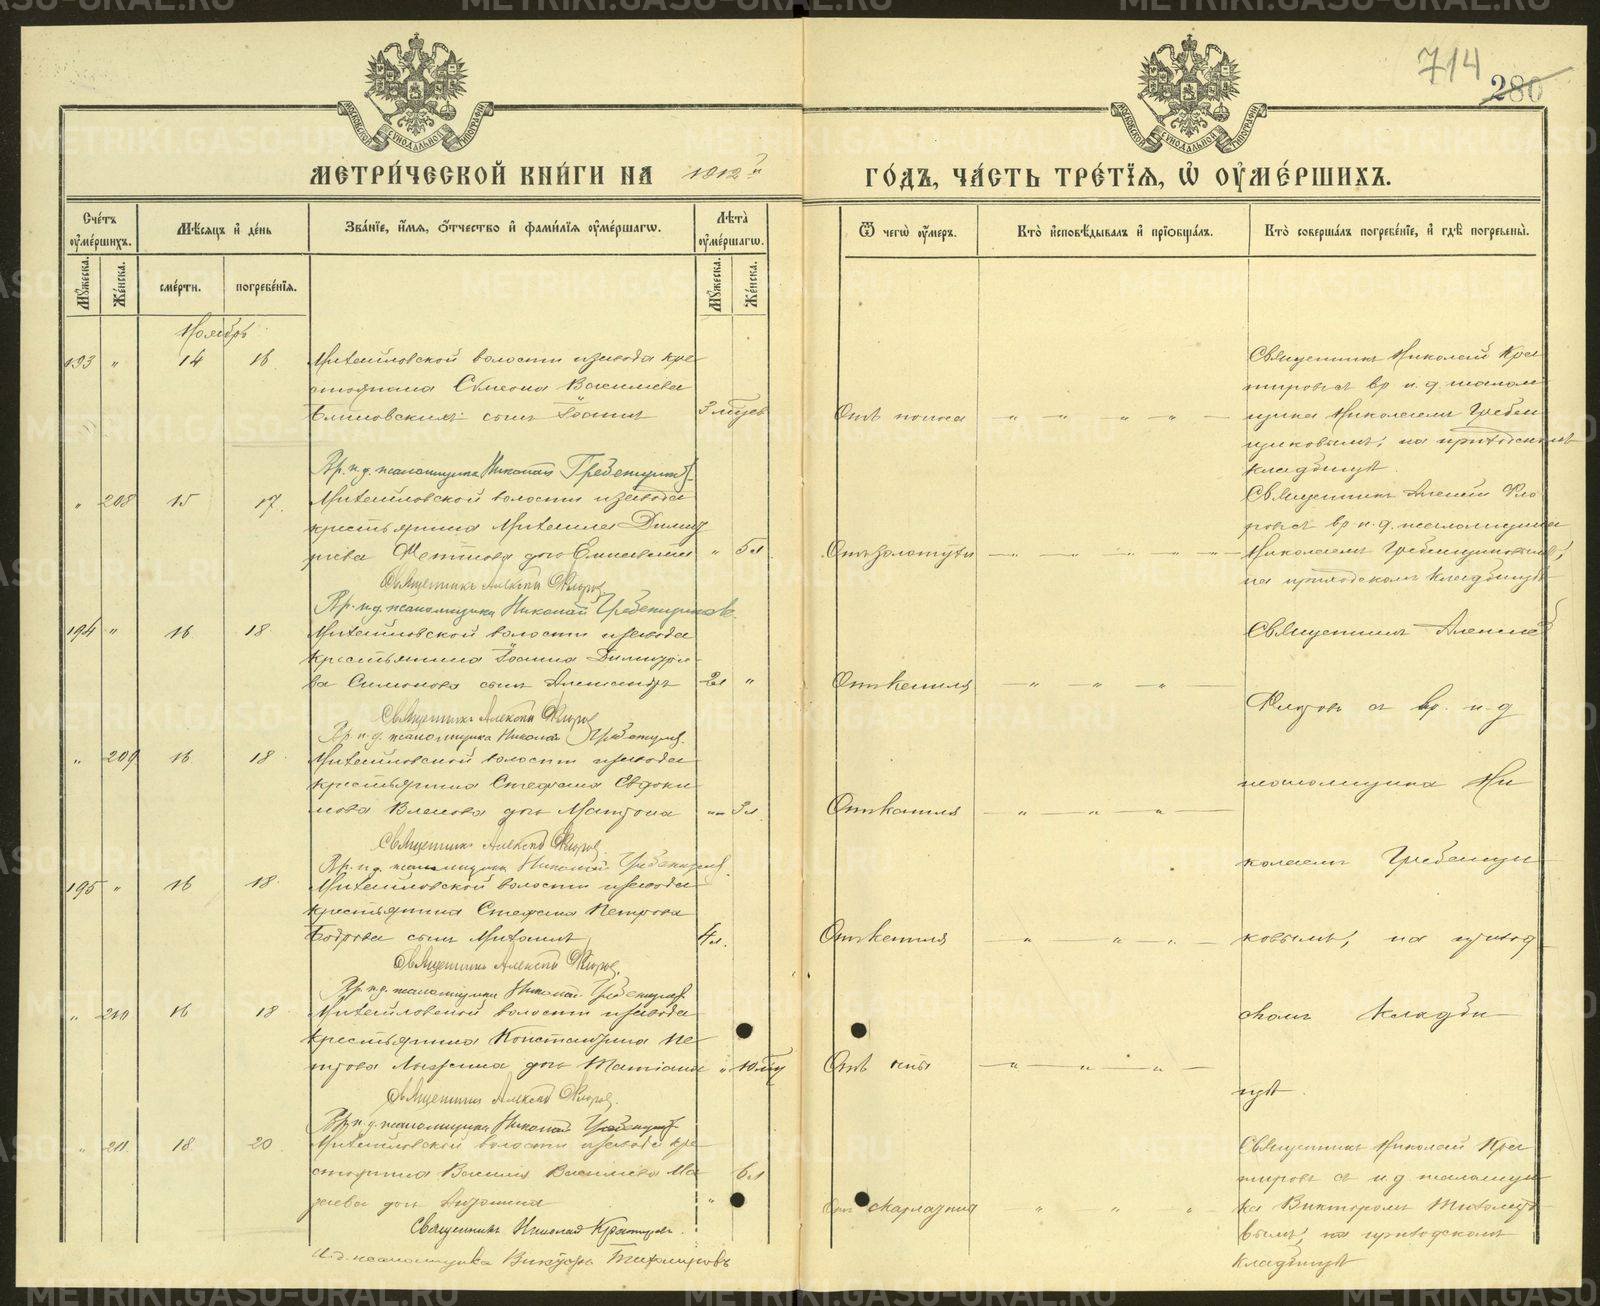 714
280
МЕТРИ́ЧЕСКОЙ КНИ́ГИ НА 1912 й
ГО́ДЪ, ЧА́СТЬ ТРЕ́ТЇЯ, Ѡ ОУМЕ́РШИХЪ.
Сче́тъ оуме́ршихъ.
Мѣ́сяцъ и де́нь
Зва́нїе, и́мя, о́тчество и фами́лїя оуме́ршагѡ.
Лѣ́та оуме́ршагѡ.
Ѿ чегѡ̀ оу́меръ.
Кто̀ исповѣ́дывалъ и прїѡбща́лъ.
Кто̀ соверша́лъ погребе́нїе, и гдѣ̀ погребены̀.
Му́жеска.
Же́нска.
сме́рти.
погребе́нїя.
Му́жеска.
Же́нска.
Ноябрь
193 " 14 16
Михайловской волости и завода кре
стьянина Симеона Васильева
сынъ Іоаннъ
3 мѣсяц
Отъ поноса
Священникъ Николай
вр. и. д. псалом
щика Николаемъ Гребен
щиковымъ, на приходскомъ
кладбищѣ.
Вр. и. д. псаломщика Николай Гребенщиков
" 208 15 17.
Михайловской волости и завода
крестьянина Михаила Димит
ріева дочь
" 5 л
Отъ золотухи
Священникъ Алексій Фло
ровъ съ вр. и. д. псаломщика
Николаемъ Гребенщиковымъ,
на приходскомъ кладбищѣ
Священникъ Алексій Флоров
Вр. и д. псаломщика Николай Гребенщиков.
194 " 16 18.
Михайловской волости и завода
крестьянина Іоанна Димитріе
ва Симонова сынъ Александръ
2 л "
Отъ кашля
Священникъ Алексѣй
Флоровъ съ вр. и. д
псаломщика Ни
колаемъ Гребенщи
ковымъ, на приход
скомъ кладби
щѣ.
Священникъ Алексій Флоров
Вр. и. д. псаломщика Николай Гребенщиков.
" 209 16 18.
Михайловской волости и завода
крестьянина Стефана Евдоки
мова дочь Матрона
" 3 л.
Отъ кашля
Священникъ Алексій Флоров.
Вр. и д. псаломщика Николай Гребенщиков.
195 " 16 18.
Михайловской волости и завода
крестьянина Стефана Петрова
Бодрова сынъ Михаилъ
4 л.
Отъ кашля
Священникъ Алексій Флоров.
Вр. и д. псаломщика Николай Гребенщиков.
" 210 16 18
Михайловской волости и завода
крестьянина Константина Пе
трова дочь
" 10 мѣ
Отъ
Священникъ Алексій Флоров.
Вр. и д. псаломщика Николай Гребенщиков
" 211. 18. 20.
Михайловской волости и завода кре
стьянина Василія Васильева
дочь
" 6 л
Отъ скарлатины
Священникъ Николай
съ и. д псаломщи
ка Викторомъ Тихоміро
вымъ, на приходскомъ
кладбищѣ
Священникъ Николай
И. д. псаломщика Викторъ Тихомировъ
METRIKI.GASO-URAL.RU